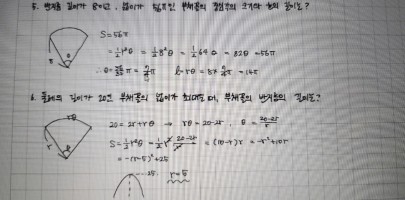 5. 반지름 길이가 8이고, 넓이가 56π인 부채꼴의 중심각의 크기와 호의 길이는?
S=56π
=½r²θ = ½8²θ = ½64θ = 32θ = 56π
∴θ = π = π l=rθ = 8× π = 14π
6. 둘레의 길이가 20인 부채꼴의 넓이가 최대일 때, 부채꼴의 반지름의 길이는?
rθ
r θ
20=2r+rθ → rθ=20-2r, θ=(20-2r)/r
S=½r²θ = ½r² (20-2r)/r = (10-r)r = -r²+10r
= -(r-5)²+25
25 r=5